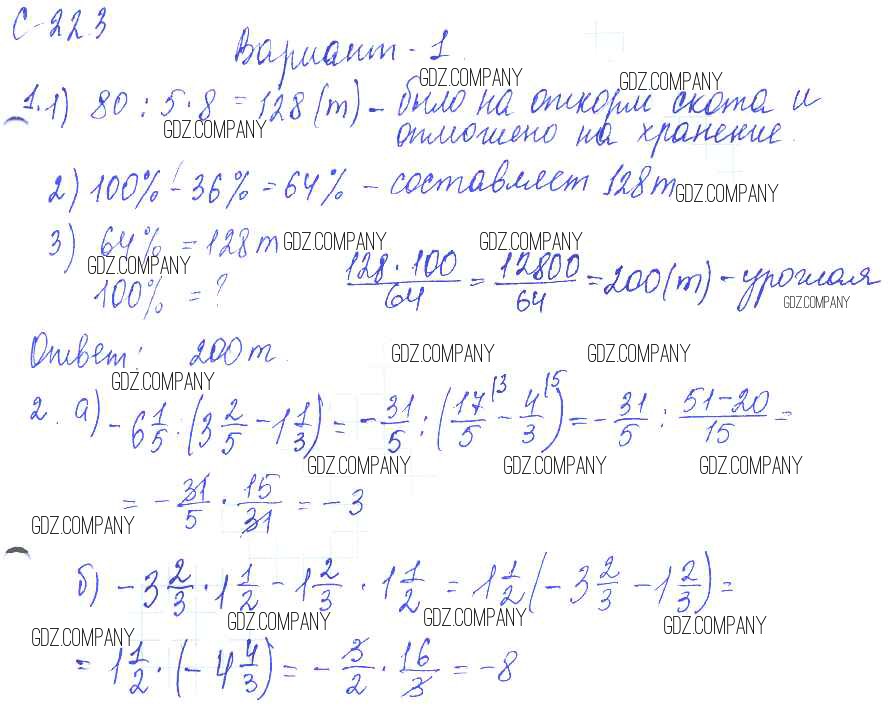 С-22.3
Вариант-1
GDZ.COMPANY GDZ.COMPANY
1. 1) 80 : 5 · 8 = 128 (т) - было на откорм скота и
GDZ.COMPANY
отмошено на хранение.
2) 100% - 36% = 64% - составляет 128т
GDZ.COMPANY
3) 64% = 128т
GDZ.COMPANY GDZ.COMPANY
GDZ.COMPANY
100% = ? 128 · 100/64 = 12800/64 = 200 (т) - урочлая
GDZ.COMPANY
Ответ: 200т.
GDZ.COMPANY GDZ.COMPANY
GDZ.COMPANY
2. а) -6 1/5 : (3 2/5 - 1 1/3) = -31/5 : (17/5 |3 - 4/3 |5) = -31/5 : 51-20/15 =
GDZ.COMPANY GDZ.COMPANY GDZ.COMPANY
= -31/5 · 15/31 = -3
GDZ.COMPANY
б) -3 2/3 · 1 1/2 - 1 2/3 · 1 1/2 = 1 1/2 (-3 2/3 - 1 2/3) =
GDZ.COMPANY GDZ.COMPANY GDZ.COMPANY
GDZ.COMPANY
= 1 1/2 · (-4 4/3) = -3/2 · 16/3 = -8